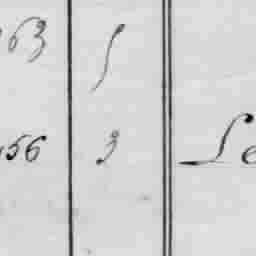 63 1
156 3 Le